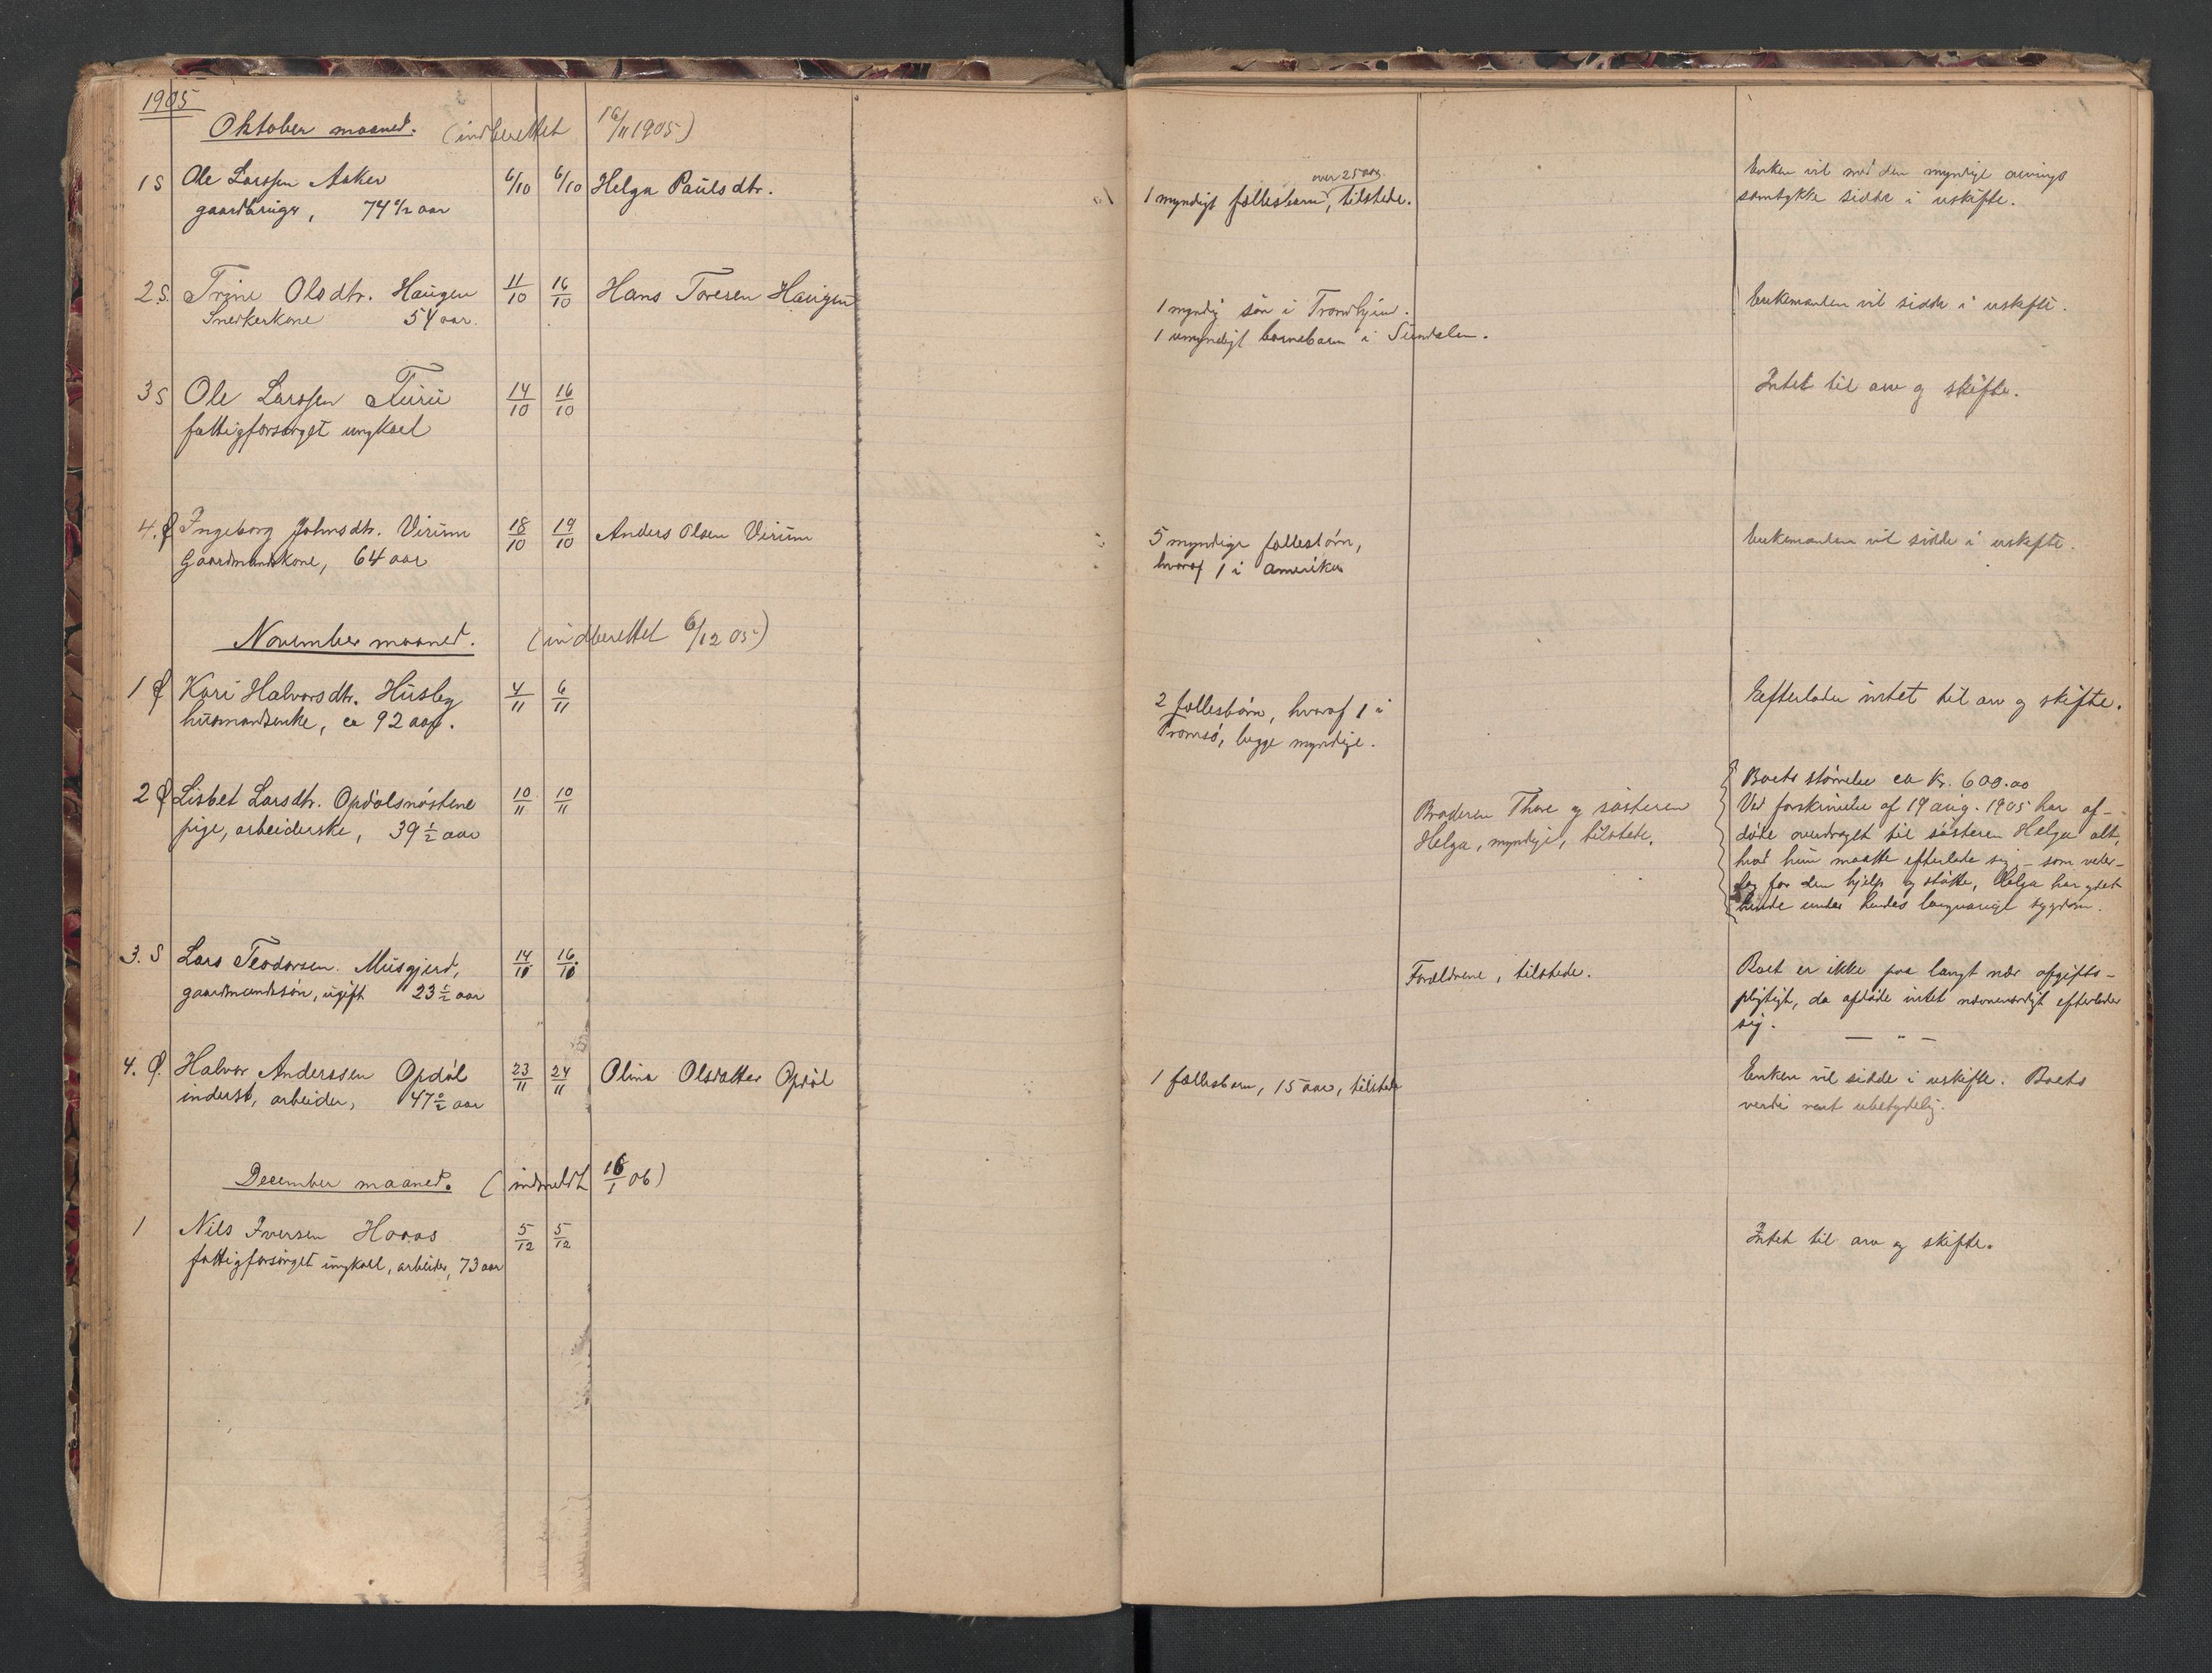 1905
Oktober maaned. (indberettet 16/11 1905)
1 S Ole Larssen Aaker 6/10 6/10 Helga Paulsdtr.
gaardbruger, 74 1/2 aar
over 25 aar
1 myndigt fællesbarn, tilstede.
Enken vil med den myndige arvings
samtykke sidde i uskifte.
2 S. Trine Olsdtr. Haugen 11/10 16/10 Hans Toresen Haugen
Snedkerkone 54 aar.
1 myndig søn i Trondhjem.
1 umyndigt barnebarn i Sundalen.
Enkemanden vil sidde i uskifte.
3 S Ole Larssen Furu 14/10 16/10
fattigforsørget ungkarl
Intet til arv og skifte.
4. Ø Ingeborg Johnsdtr. Virum 18/10 19/10 Anders Olsen Virum
Gaardmandskone, 64 aar
5 myndige fællesbørn,
hvoraf 1 i Amerika
Enkemanden vil sidde i uskifte.
November maaned. (indberettet 6/12 05)
1 Ø Kari Halvorsdtr. Husby 4/11 6/11
husmandsenke, ca 92 aar.
2 fællesbørn, hvoraf 1 i
Tromsø, begge myndige.
Efterlader intet til arv og skifte.
2 Ø Lisbet Larsdtr. Opdølsnøstene 10/11 10/11
pige, arbeiderske, 39 1/2 aar
Broderen Thore og søsteren
Helga, myndige, tilstede.
Boets størrelse ca Kr. 600.00
Ved forskrivelse af 19 aug. 1905 har af-
døde overdraget til søsteren Helga alt,
hvad hun maatte efterlade sig, – som veder-
lag for den hjelp og støtte, Helga har ydet
hende under hendes langvarige sygdom.
3. S Lars Teodorsen Musgjerd, 14/10 16/10
gaardmandssøn, ugift 23 1/2 aar
Forældrene, tilstede.
Boet er ikke paa langt nær afgifts-
pligtigt, da afdøde intet nævneværdigt efterlader
sig. — " —
4. Ø. Halvor Anderssen Opdøl 23/11 24/11 Olina Olsdatter Opdøl
inderst, arbeider, 47 1/2 aar
1 fællesbarn, 15 aar, tilstede
Enken vil sidde i uskifte. Boets
verdi rent ubetydelig.
December maaned. (indmeldt 16/1 06)
1 Nils Iversen Hoaas 5/12 5/12
fattigforsørget ungkarl, arbeider, 73 aar
Intet til arv og skifte.